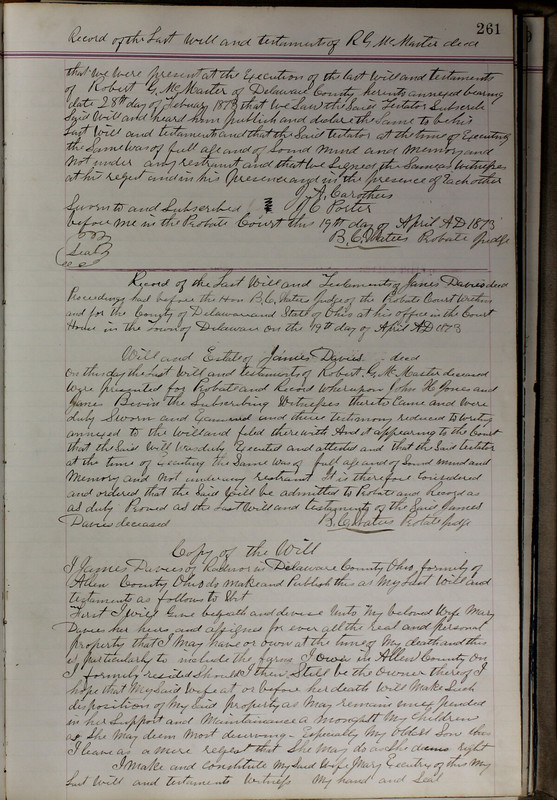 261
Record of the Last Will and testament of R G McMaster decd
that we were present at the Execution of the last Will and testaments
of Robert G. McMaster of Delaware County hereunto annexed bearing
date 28th day of February 1873 that we Saw the Said Testator Subscribe
Said Will and heard him publish and declare the Same to be his
Last Will and testament and that the Said testator at the time of Executing
the Same was of full age and of Sound Mind and Memory and
not under any restraint and that we Signed the Same as Witnesses
at his request and in his presence and in the presence of Each other
J A. Carothers
Sworn to and Subscribed C Potter
before me in the Probate Court this 19th day of April A.D 1873
B. C. Waters Probate Judge
Seal
Record of the Last Will and Testament of James Davies decd
Proceedings had before the Hon B.C. Waters Judge of the Probate Court Within
and for the County of Delaware and State of Ohio at his office in the Court
House in the Town of Delaware on the 19th day of April AD 1873
Will and Estate of James Davies decd
On this day the Last Will and testaments of Robert G. McMaster deceased
Were presented for Probate and Record whereupon John H Jones and
James Bevis the Subscribing Witnesses thereto Came and Were
duly Sworn and Examined and their testimony reduced to Writing
annexed to the Will and filed therewith And it appearing to the Court
that the Said Will Was duly Executed and attested and that the Said testator
at the time of Executing the Same Was of full age and of Sound mind and
Memory and Not under any restraint It is therefore Considered
and ordered that the Said Will be admitted to Probate and Record as
as duly Proved as the Last Will and testament of the Said James
Davies deceased B. C. Waters Probate Judge
Copy of the Will
I James Davies of Radnor in Delaware County Ohio, formerly of
Allen County Ohio do make and Publish this as My Last Will and
testaments as follows to Wit
First I Will Give bequeath and devise Unto My beloved Wife Mary
Davies her heirs and assigns for ever all the real and personal
property that I May have or own at the time of My death and this
is particularly to include the farm I own in Allen County on
I formerly resided Should I then Still be the Owner thereof I
hope that My Said Wife at or before her death Will Make Such
disposition of My Said property as May remain unexpended
in her Support and Maintainance amongst My Children
as She May deem Most deserving - Especially My Oldest Son this
I leave as a mere request that She May do as She deems right
I make and Constitute My Said Wife Mary Executrix of this My
Last Will and testaments Witness My hand and Seal